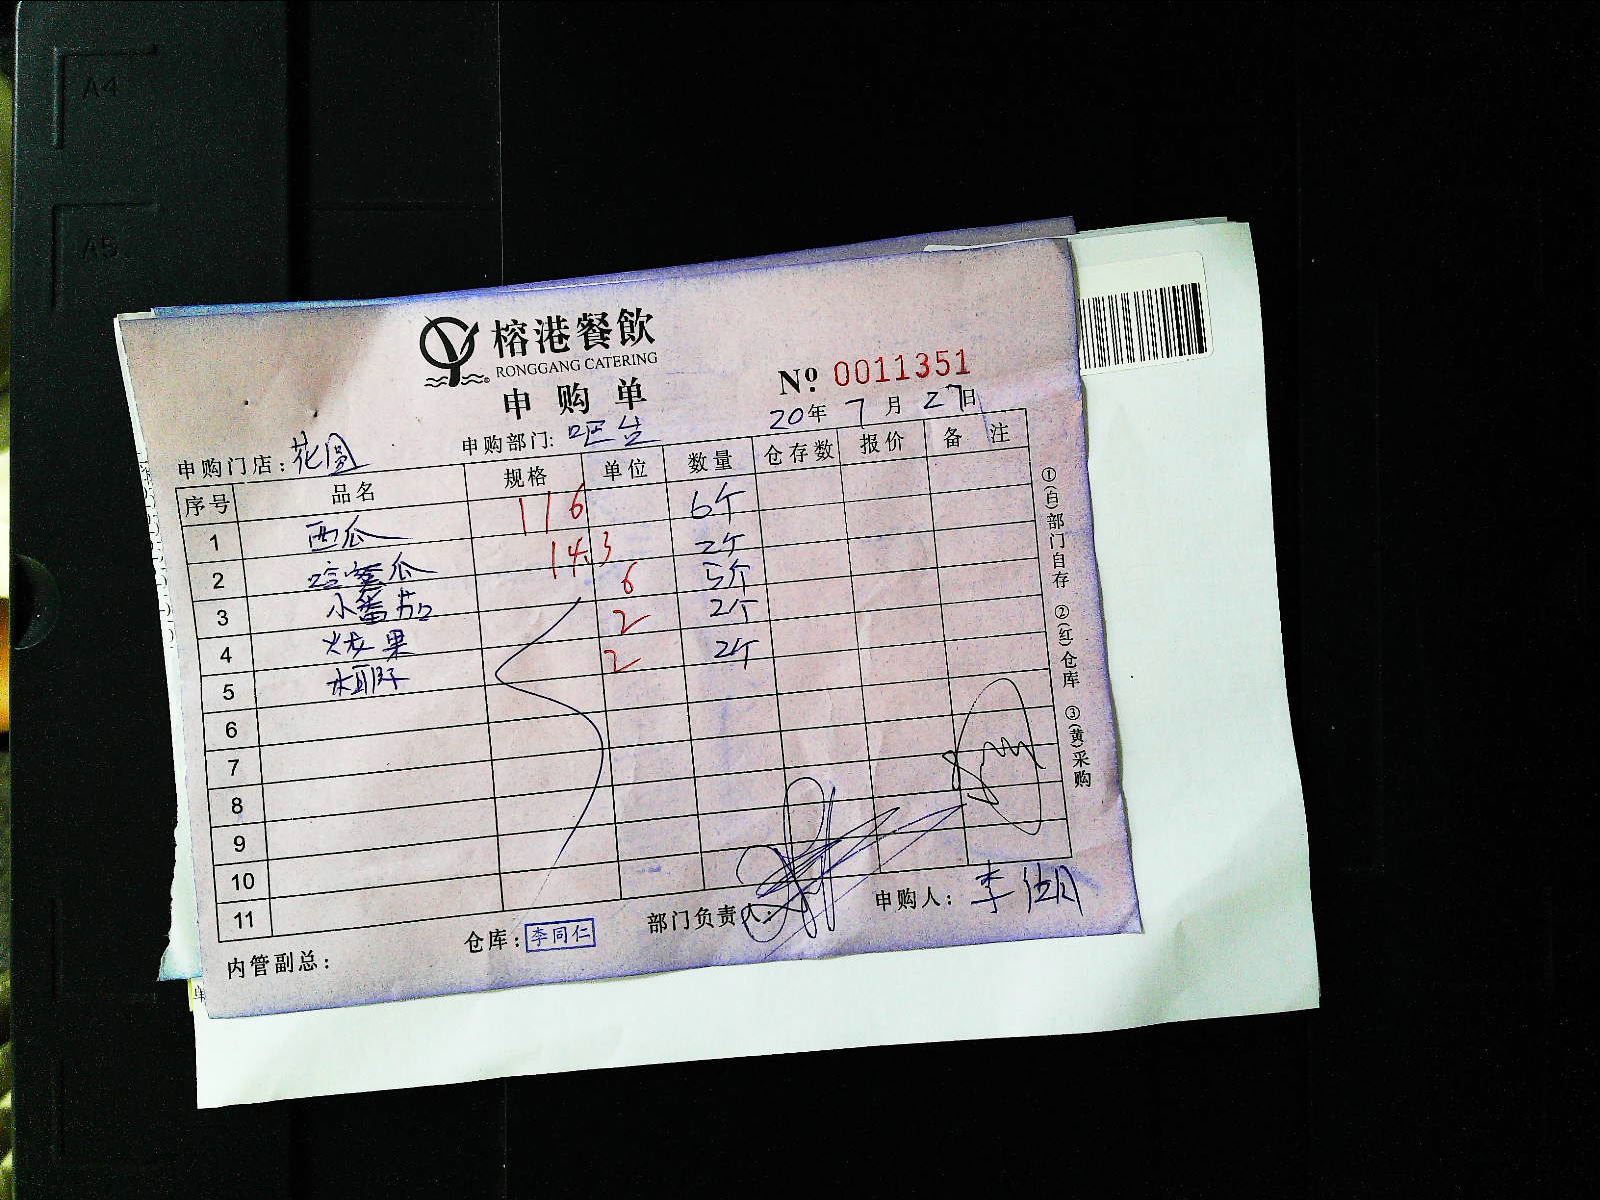 A4
A5
榕港餐飲
RONGGANG CATERING
申购单
№ 0011351
20年 7月 27日
申购门店: 花园
申购部门: 吧台
序号 品名 规格 单位 数量 仓存数 报价 备注
1 西瓜 116 6个
2 哈蜜瓜 14.3 2个
3 小番茄 6 5个
4 火龙果 2 2个
5 木瓜 2 2个
6
7
8
9
10
11
①(白)部门自存 ②(红)仓库 ③(黄)采购
内管副总:
仓库: 李同仁
部门负责人:
申购人: 李